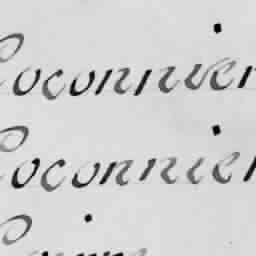 Coconnier
Coconnier